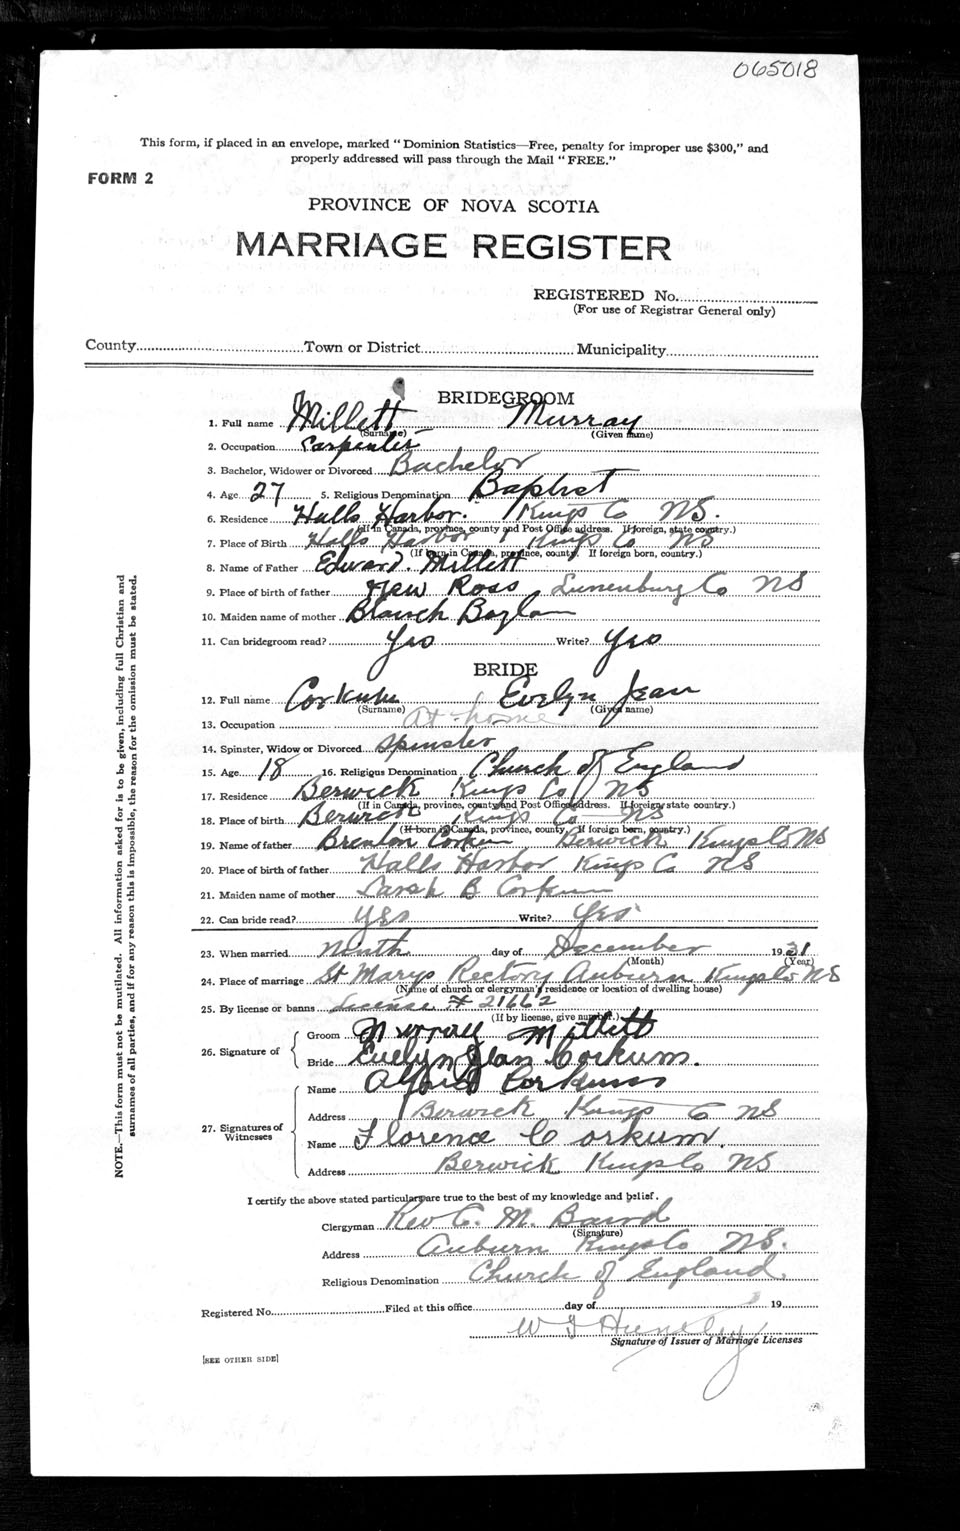 065018
This form, if placed in an envelope, marked "Dominion Statistics—Free, penalty for improper use $300," and
properly addressed will pass through the Mail "FREE."
FORM 2
PROVINCE OF NOVA SCOTIA
MARRIAGE REGISTER
REGISTERED No.
(For use of Registrar General only)
County Town or District Municipality
BRIDEGROOM
1. Full name Millett Murray
(Surname) (Given name)
2. Occupation Carpenter
3. Bachelor, Widower or Divorced Bachelor
4. Age 27 5. Religious Denomination Baptist
6. Residence Halls Harbor. Kings Co NS.
(If in Canada, province, county and Post Office address. If foreign, state country.)
7. Place of Birth Halls Harbor Kings Co NS
(If born in Canada, province, county. If foreign born, country.)
8. Name of Father Edward. Millett
9. Place of birth of father New Ross Lunenburg Co NS
10. Maiden name of mother Blanch
11. Can bridegroom read? Yes Write? Yes
BRIDE
12. Full name Corkum Evelyn Jean
(Surname) (Given name)
13. Occupation At home
14. Spinster, Widow or Divorced Spinster
15. Age 18 16. Religious Denomination Church of England
17. Residence Berwick Kings Co NS
(If in Canada, province, county and Post Office address. If foreign state country.)
18. Place of birth Berwick Kings Co NS
(If born in Canada, province, county, If foreign born, country.)
19. Name of father Brenton Corkum Berwick Kings Co NS
20. Place of birth of father Halls Harbor Kings Co NS
21. Maiden name of mother Sarah B Corkum
22. Can bride read? Yes Write? Yes
23. When married Ninth day of December 1931
(Month) (Year)
24. Place of marriage St Marys Rectory Auburn Kings Co NS
(Name of church or clergyman's residence or location of dwelling house)
25. By license or banns License # 21662
(If by license, give number.)
26. Signature of
Groom Murray Millett
Bride Evelyn Jean Corkum.
27. Signatures of Witnesses
Name Corkum
Address Berwick Kings Co NS
Name Florence Corkum.
Address Berwick Kings Co NS
I certify the above stated particulars are true to the best of my knowledge and belief.
Clergyman Rev C. M. Baird
(Signature)
Address Auburn Kings Co NS.
Religious Denomination Church of England
Registered No. Filed at this office day of 19
W
Signature of Issuer of Marriage Licenses
[SEE OTHER SIDE]
NOTE.—This form must not be mutilated. All information asked for is to be given, including full Christian and
surnames of all parties, and if for any reason this is impossible, the reason for the omission must be stated.